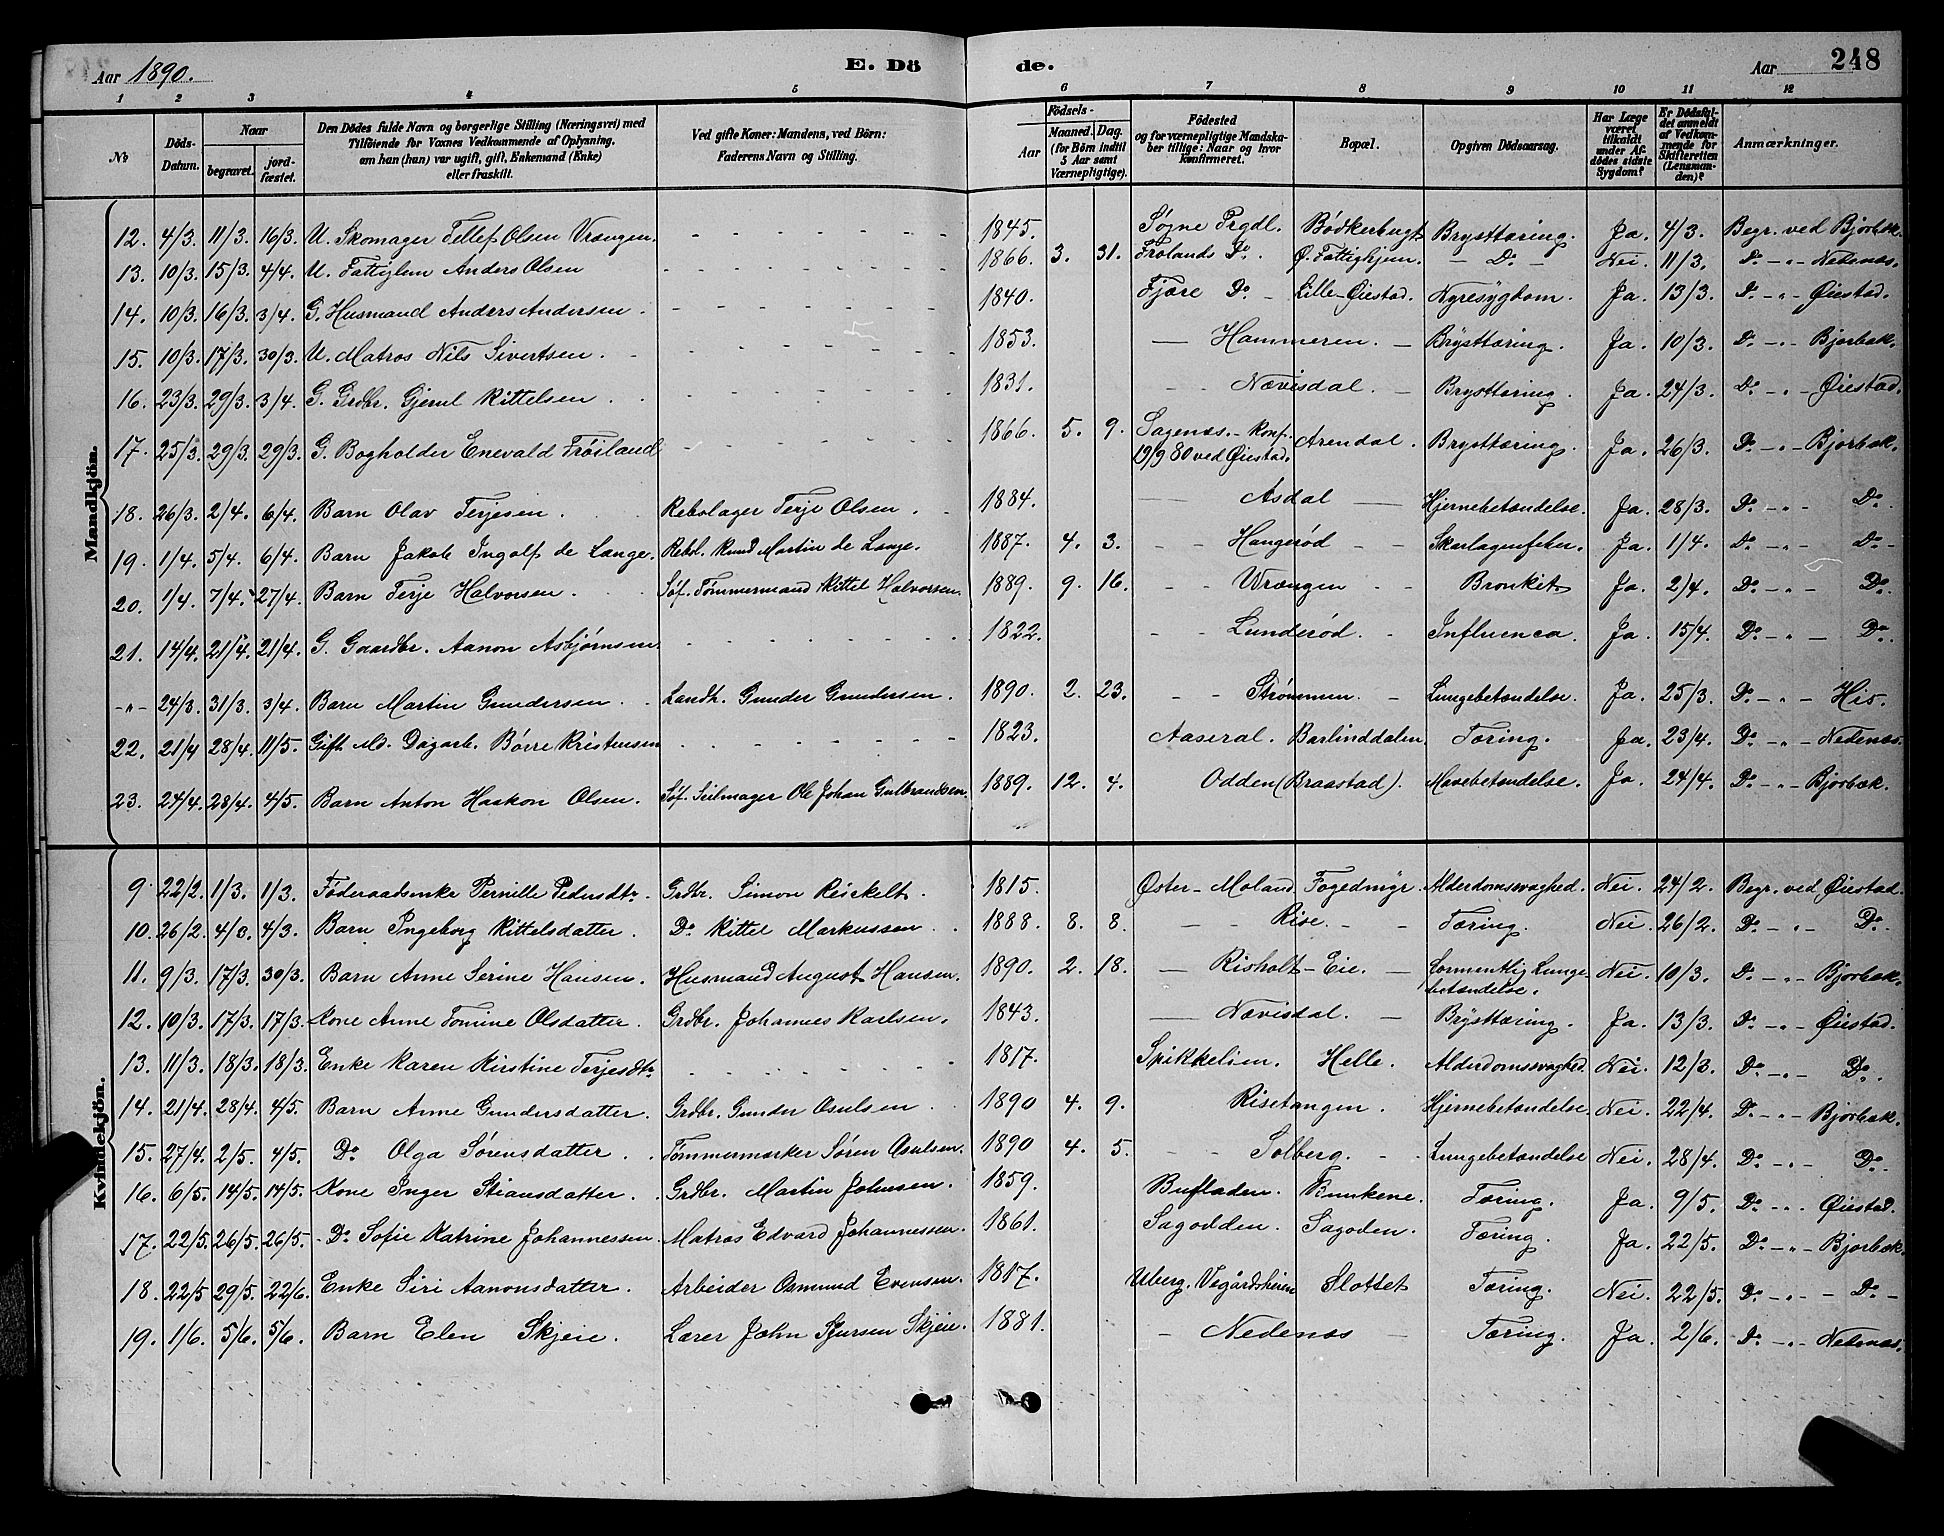 Aar 1890. E. Dö de. Aar 248
1 2 3 4 5 6 7 8 9 10 11 12
No
Döds-Datum.
Naar begravet. jord-fæstet.
Den Dödes fulde Navn og borgerlige Stilling (Næringsvei) med Tilföiende for Voxnes Vedkommende af Oplysning, om han (hun) var ugift, gift, Enkemand (Enke) eller fraskilt.
Ved gifte Koner: Mandens, ved Börn: Faderens Navn og Stilling.
Födsels- Aar Maaned. Dag. (for Börn indtil 5 Aar samt Værnepligtige).
Födested og for værnepligtige Mandskaber tillige: Naar og hvor Konfirmeret.
Bopæl.
Opgiven Dödsaarsag.
Har Læge været tilkaldt under Afdödes sidste Sygdom?
Er Dödsfaldet anmeldt af Vedkommende for Skifteretten (Lensmanden)?
Anmærkninger.
Mandkjön.
12. 4/3. 11/3. 16/3. U. Skomager Tellef Olsen Vrængen. 1845. Søgne Prgdl. Bødkerbugt Brysttæring. Ja. 4/3. Begr. ved Bjorbæk.
13. 10/3. 15/3. 4/4. U. Fattiglem Anders Olsen 1866. 3. 31. Frolands Do. Ø. Fattighjem. — Do — Nei. 11/3. Do -"- Nedenæs.
14. 10/3. 16/3. 3/4. G. Husmand Anders Andersen. 1840. Fjære Do. - Lille-Øiestad. Nyresygdom. Ja. 13/3. Do -"- Øiestad.
15. 10/3. 17/3. 30/3. U. Matros Nils Sivertsen. 1853. — Hammeren. — Brysttæring. Ja. 10/3. Do -"- Bjorbæk.
16. 23/3. 29/3. 3/4. G. Grdbr. Gjerul Kittelsen. 1831. - - Nævisdal. — Brysttæring. Ja. 24/3. Do -"- Øiestad.
17. 25/3. 29/3. 29/3. G. Bogholder Enevald Frøiland 1866. 5. 9. Sagenæs. - Konf. 19/9 80 ved Øiestad. Arendal. Brysttæring. Ja. 26/3. Do -"- Bjorbæk.
18. 26/3. 2/4. 6/4. Barn Olav Terjesen. Rebslager Terje Olsen. 1884. — Asdal — Hjernebetændelse. Ja. 28/3. Do -"- Do.
19. 1/4. 5/4. 6/4. Barn Jakob Ingolf de Lange. Rebsl. Knud Martin de Lange. 1887. 4. 3. - - Hangerød - - Skarlagensfeber. Ja. 1/4. Do -"- Do.
20. 1/4. 7/4. 27/4. Barn Terje Halvorsen. Søf. Tømmermand Kittel Halvorsen. 1889. 9. 16. - Wrængen - Bronkit. Ja. 2/4. Do -"- Do.
21. 14/4. 21/4. 21/4. G. Gaardbr. Aanon Asbjørnsen. 1822. - - Lunderød. - Influenca. Ja. 15/4. Do -"- Do.
-"- 24/3. 31/3. 3/4. Barn Martin Gundersen. Landh. Gunder Gundersen. 1890. 2. 23. - - Strømmen. - Lungebetændelse. Ja. 25/3. Do -"- His.
22. 21/4 28/4. 11/5. Gift M. Dagarb. Børre Kristensen 1823. Aaseral. Barlinddalen. Tæring. Ja. 23/4. Do -"- Nedenæs.
23. 24/4. 28/4. 4/5. Barn Anton Haakon Olsen. Søf. Seilmager Ole Johan Gulbrandsen. 1889. 12. 4. Odden (Braastad). Mavebetændelse. Ja. 24/4. Do -"- Bjorbæk.
Kvindekjön.
9. 22/2. 1/3. 1/3. Føderaadsenke Pernille Pedersdtr. Grdbr. Simon 1815. Øster-Moland. Fogedmyr. Alderdomssvaghed. Nei. 24/2. Begr. ved Øiestad.
10. 26/2. 4/3. 4/3. Barn Ingeborg Kittelsdatter. Do Kittel Markussen. 1888. 8. 8. - - Rise. - - Tæring. Nei. 26/2. Do -"- Do.
11. 9/3. 17/3. 30/3. Barn Anne Serine Hansen. Husmand August Hansen. 1890. 2. 18. — Risholt-Eie. — Formentlig Lungebetændelse. Nei. 10/3. Do -"- Bjorbæk.
12. 10/3. 17/3. 17/3. Kone Anne Tomine Olsdatter. Grdbr. Johannes Karlsen. 1843. — Nævisdal. — Brysttæring. Ja. 13/3. Do -"- Øiestad.
13. 11/3. 18/3. 18/3. Enke Karen Kirstine Terjesdtr. 1817. Spikkelien. Helle. Alderdomssvaghed. Nei. 12/3. Do -"- Do.
14. 21/4. 28/4. 4/5. Barn Anne Gundersdatter. Grdbr. Gunder Osulsen. 1890 4. 9. Risetangen. Hjernebetændelse. Nei. 22/4. Do -"- Bjorbæk.
15. 27/4. 2/5. 4/5. Do Olga Sørensdatter. Tømmermærker Søren Osulsen. 1890 4. 5. - - Solberg. - - Lungebetændelse Nei. 28/4. Do -"- Do.
16. 6/5. 14/5. 14/5. Kone Inger Stiansdatter. Grdbr. Martin Johnsen. 1859. Bufladen. Bunkene. Tæring. Ja. 9/5. Do -"- Øiestad.
17. 22/5. 26/5. 26/5. - Do Sofie Katrine Johannessen. Matros Edvard Johannessen. 1861. Sagodden. Sagoden. Tæring. Ja. 22/5. Do -"- Bjorbæk.
18. 22/5 29/5. 22/6. Enke Siri Aanonsdatter. Arbeider Osmund Evensen. 1817. Uberg, Vegårdsheien Slottet Tæring. Nei. 22/5. Do -"- - Do -
19. 1/6. 5/6. 5/6. Barn Elen Skjeie. Lærer John Sjursen Skjeie. 1881. - Nedenæs - Tæring. Ja. 2/6. Do -"- Nedenæs.